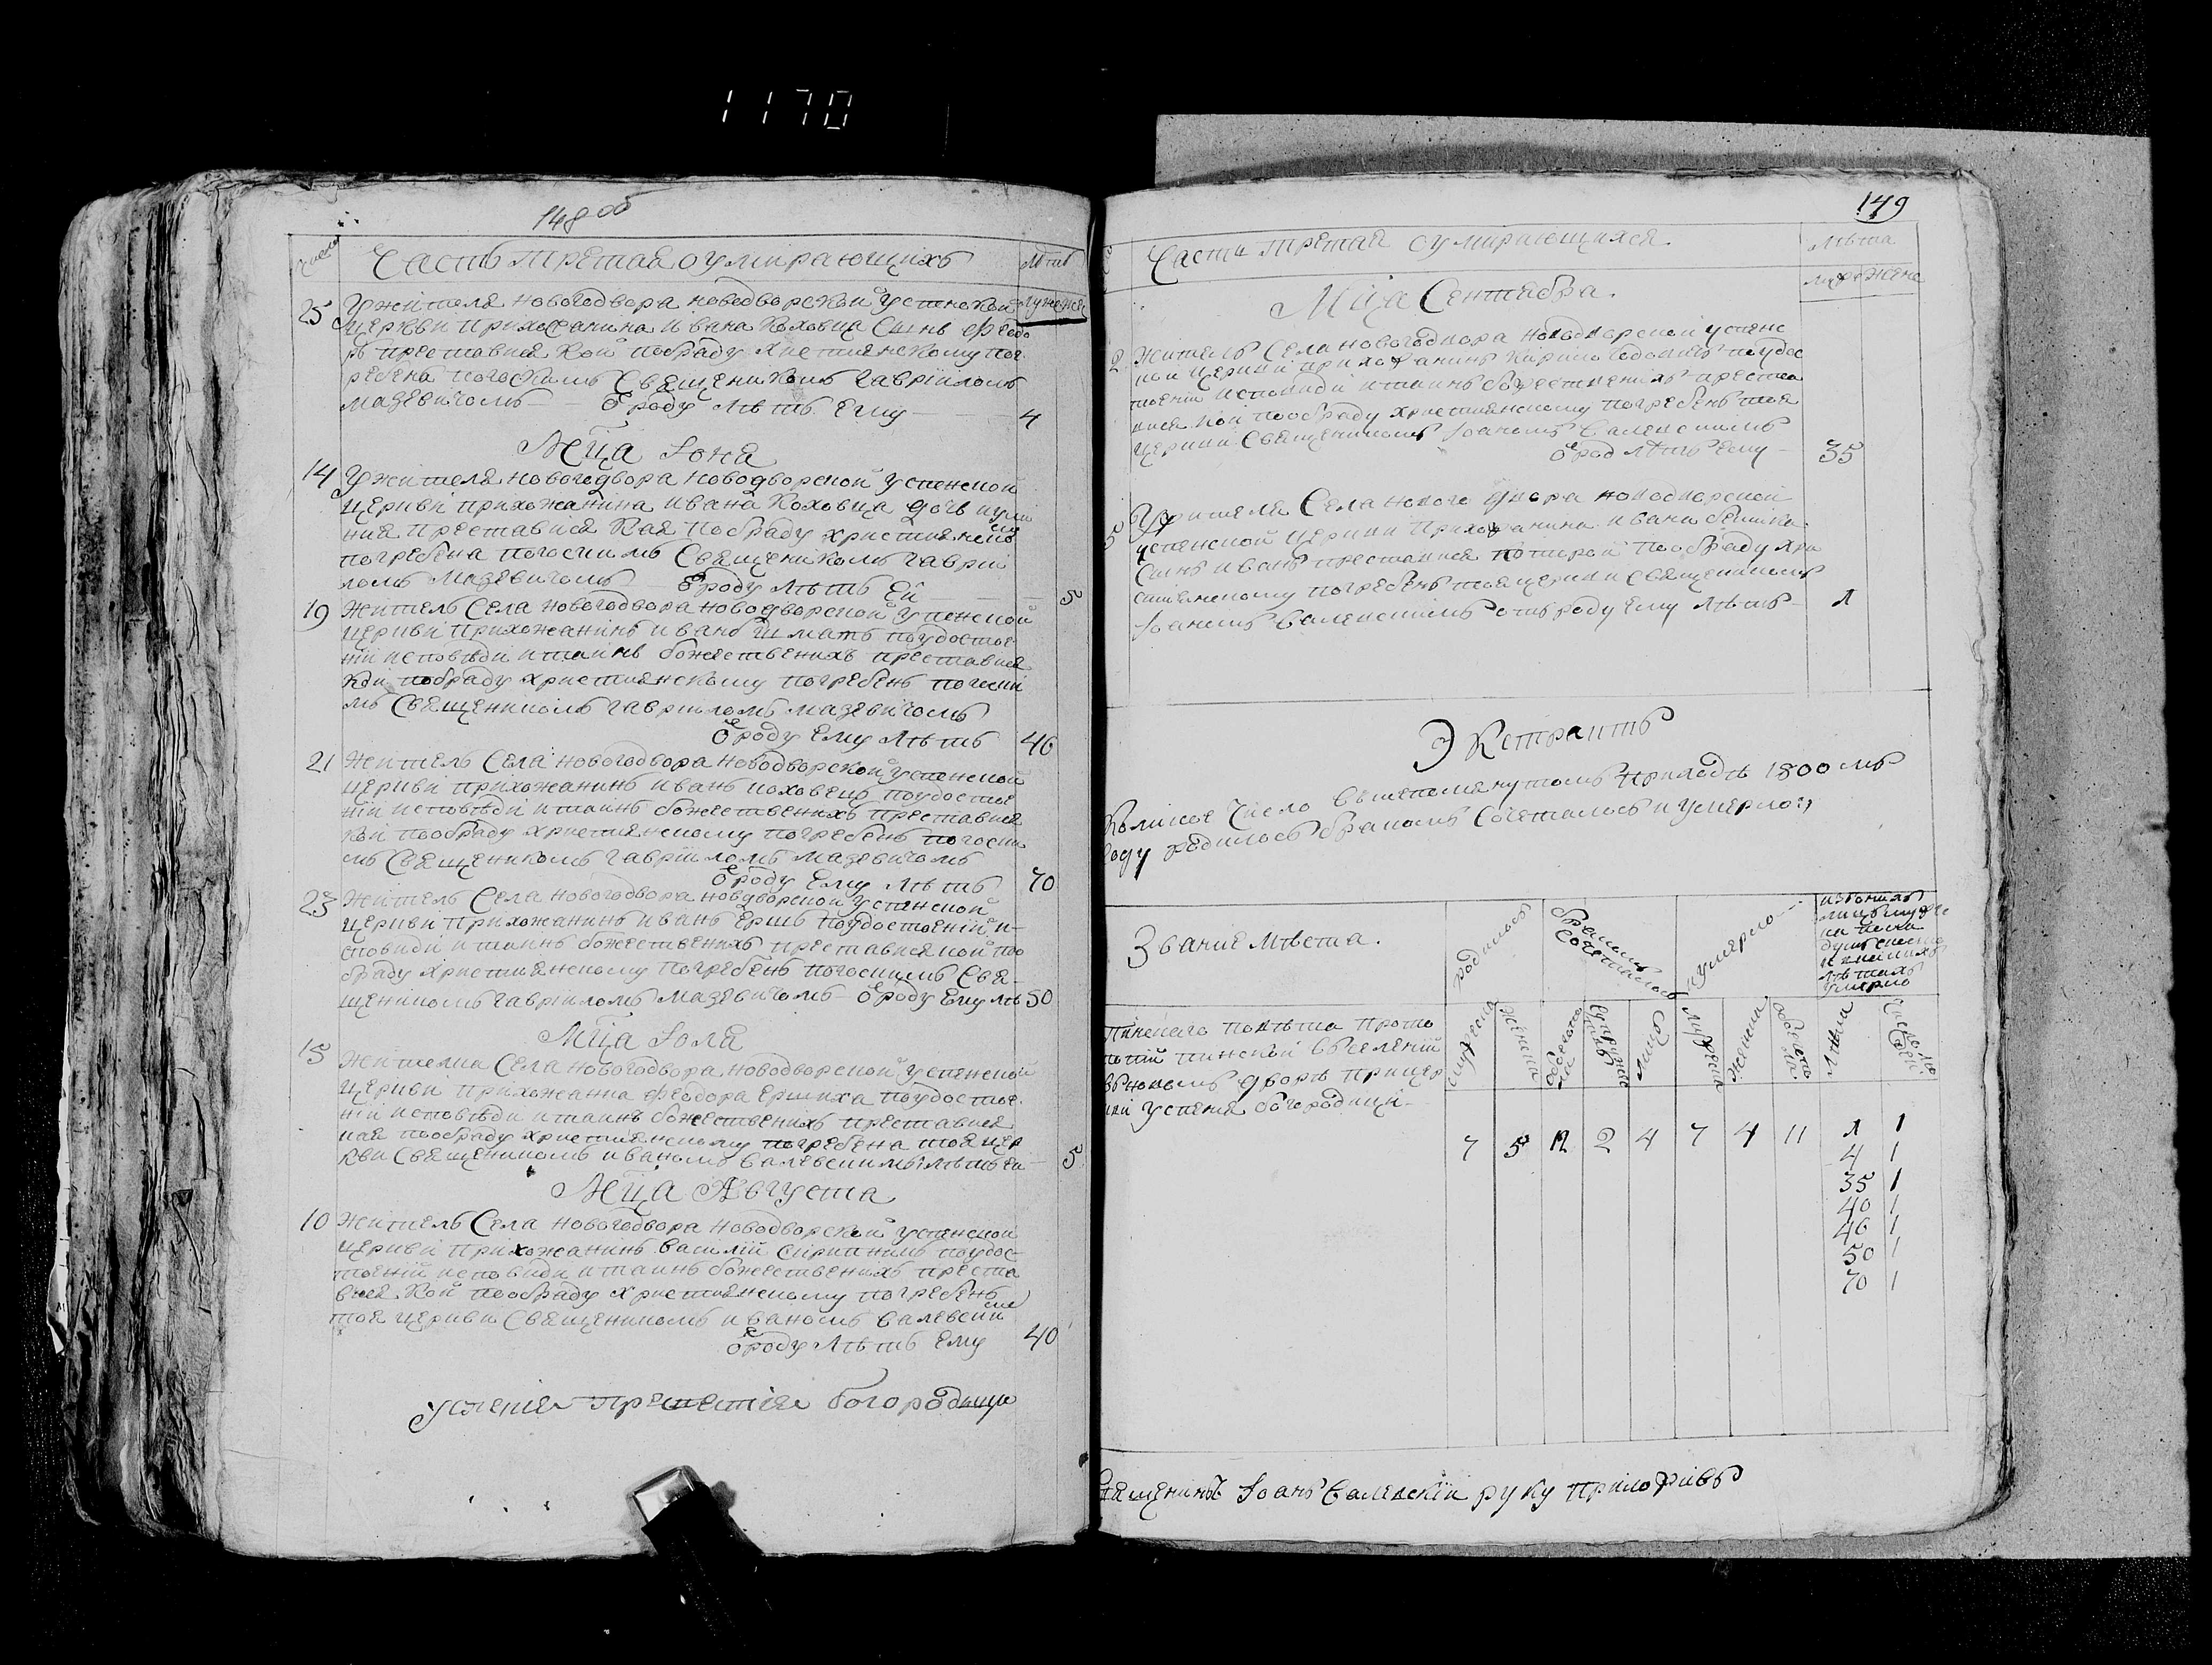 1170
148 об
числа Часть третая оумирающихъ Лѣтъ
муже жен
25 У жителя новогодвора новодворской успенской
церкви прихожанина ивана Коховца Сынъ Феодо
ръ преставися кой пообряду християнскому пог
ребенъ погоскимъ Священикомъ гавріиломъ
мазевичомъ — ѿроду лѣтъ ему — 4
Мца Іюня
14 У жителя новогодвора новодворской успенской
церкви прихожанина ивана Коховца дочь
преставися кая пообряду християнско
погребена погоскимъ Священікомъ гаврії
ломъ мазевичомъ — ѿроду лѣтъ ей — 5
19 житель Села новогодвора новодворской успенской
церкви прихожанинъ иванъ Шматъ поудостое
ніи исповѣди итаинъ божественихъ преставися
кои пообряду християнскому погребенъ погоски
мъ Священикомъ гавріиломъ мазевичомъ
ѿроду ему лѣтъ 46
21 житель Села новогодвора новодворской успенской
церкви прихожанинъ иванъ коховецъ поудостое
ніи исповѣди итаинъ божественихъ преставися
кои пообряду християнскому погребенъ погоски
мъ Священикомъ гавріиломъ мазевичомъ
ѿроду ему лѣтъ 70
23 житель Села новогодвора новодворской успенской
церкви прихожанинъ иванъ Ершъ поудостоеніи и
сповиди итаинъ божественихъ преставися кой поо
бряду християнскому погребенъ погоскимъ Свя
щеникомъ гавріиломъ мазевичомъ — ѿроду ему лѣ 50
Мца Іюля
15 жителка Села новогодвора новодворской успенской
церкви прихожанка феодора Ершиха поудостое
ніи исповѣди итаинъ божественихъ преставися
кая пообряду християнскому погребена тоя цер
кви Священикомъ иваномъ валевскимъ лѣтъ ей — 5
Мца Августа
10 житель Села новогодвора новодворской успенской
церкви прихожанинъ василій поудос
тоеніи исповиди итаинъ божественихъ преста
вися кой пообряду християнскому погребенъ
тоя церкви Священикомъ иваномъ валевски
ѿроду лѣтъ ему 40
Успенія пречестія богородици
149
Часть третая оумирающихся. лѣта
муже жене
Мца Сентября.
2 житель Села новогодвора новодворской успенс
кой церкви прихожанинъ поудос
тоеніи исповиди итаинъ божественихъ преста
вися кой пообряду християнскому погребенъ тоя
церкви Священикомъ Іоаномъ Валевскимъ
ѿрод лѣтъ ему — 35
5 У жителя Села нового двора новодворской
успенской церкви прихожанина ивана
Сынъ иванъ преставися которой пообряду хри
стиянскому погребенъ тоя церкви Священикомъ
Іоаномъ Валевскимъ отъ роду ему лѣтъ — 1
Экстрактъ
Коликое число вишепомянутомъ приходѣ 1800 мъ
году родилось бракомъ Сочеталось и умерло
Звание мѣста. родилось бракомъ сочеталось и умерло
лѣтахъ
умерло
мужеска женска обоего супружес лицъ мужеска женска обоего лѣта число
пинскаго повѣта прото
попіи пинской вселеніи
вновомъ дворѣ прицер
кви успенія богородици —
7 5 12 2 4 7 4 11 1 1
4 1
35 1
40 1
46 1
50 1
70 1
Священикъ Іоанъ Валевскіи руку приложивъ